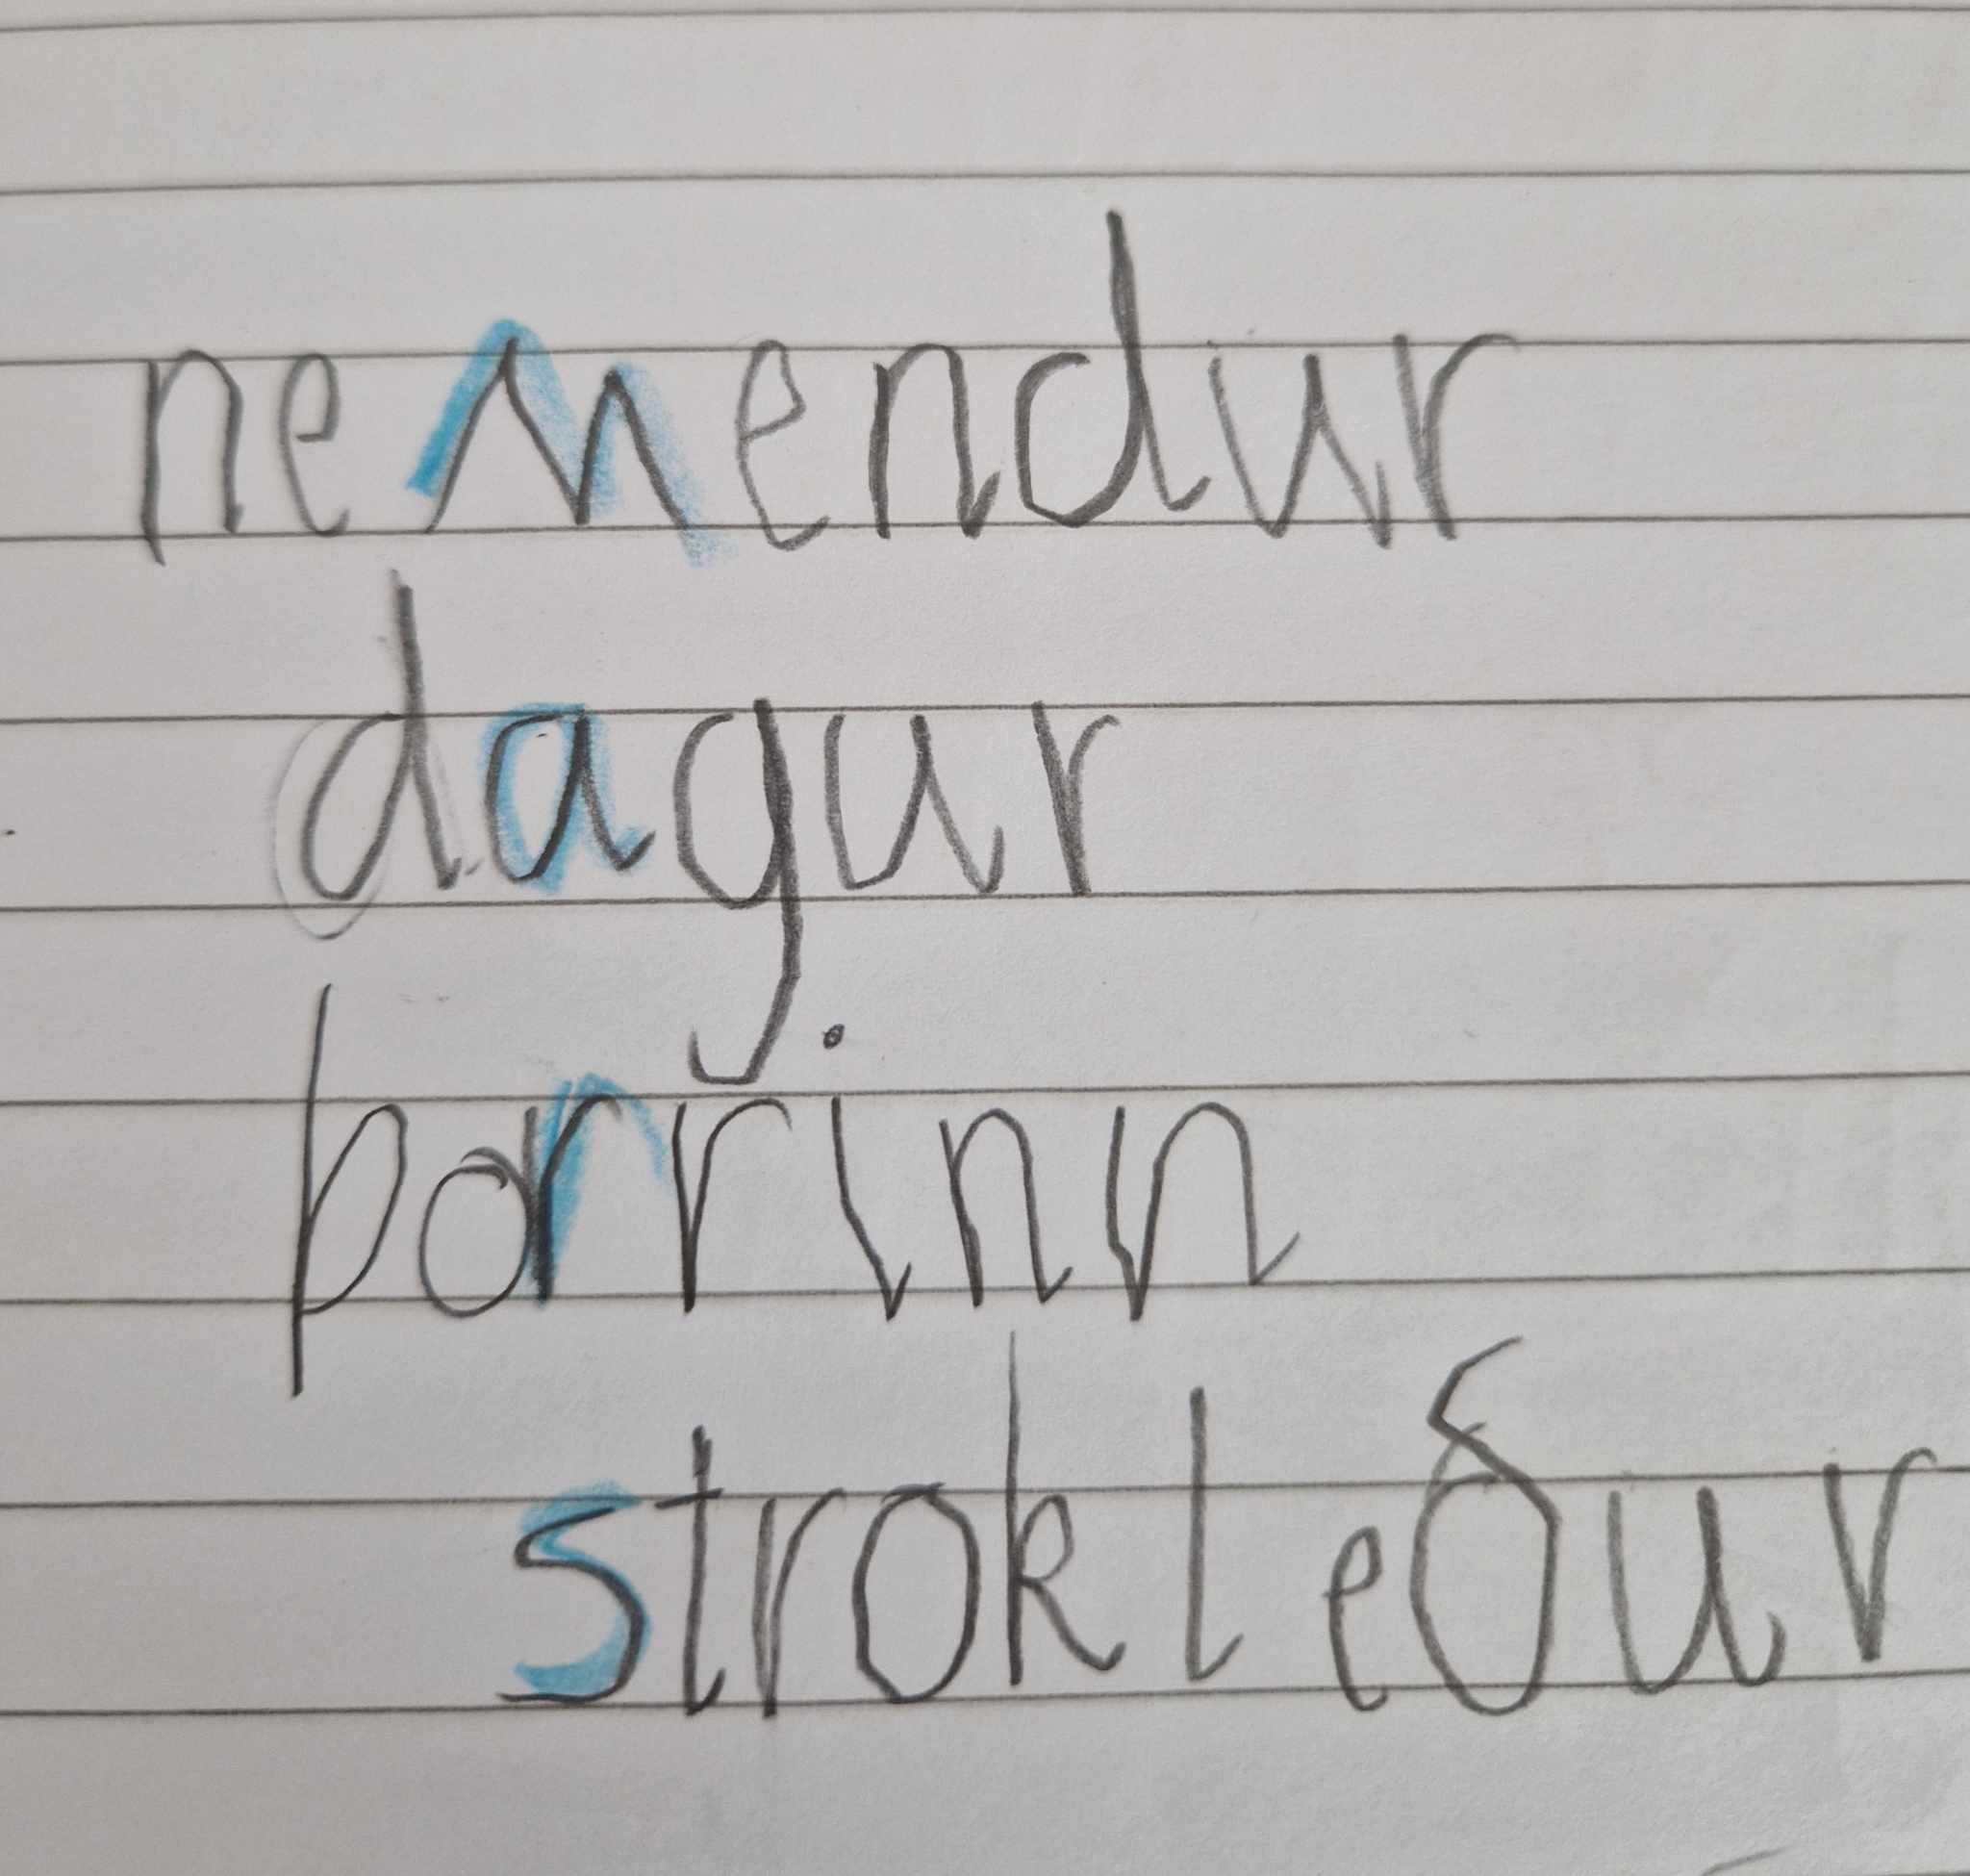 nemendur
dagur
þorrinn
strokleður